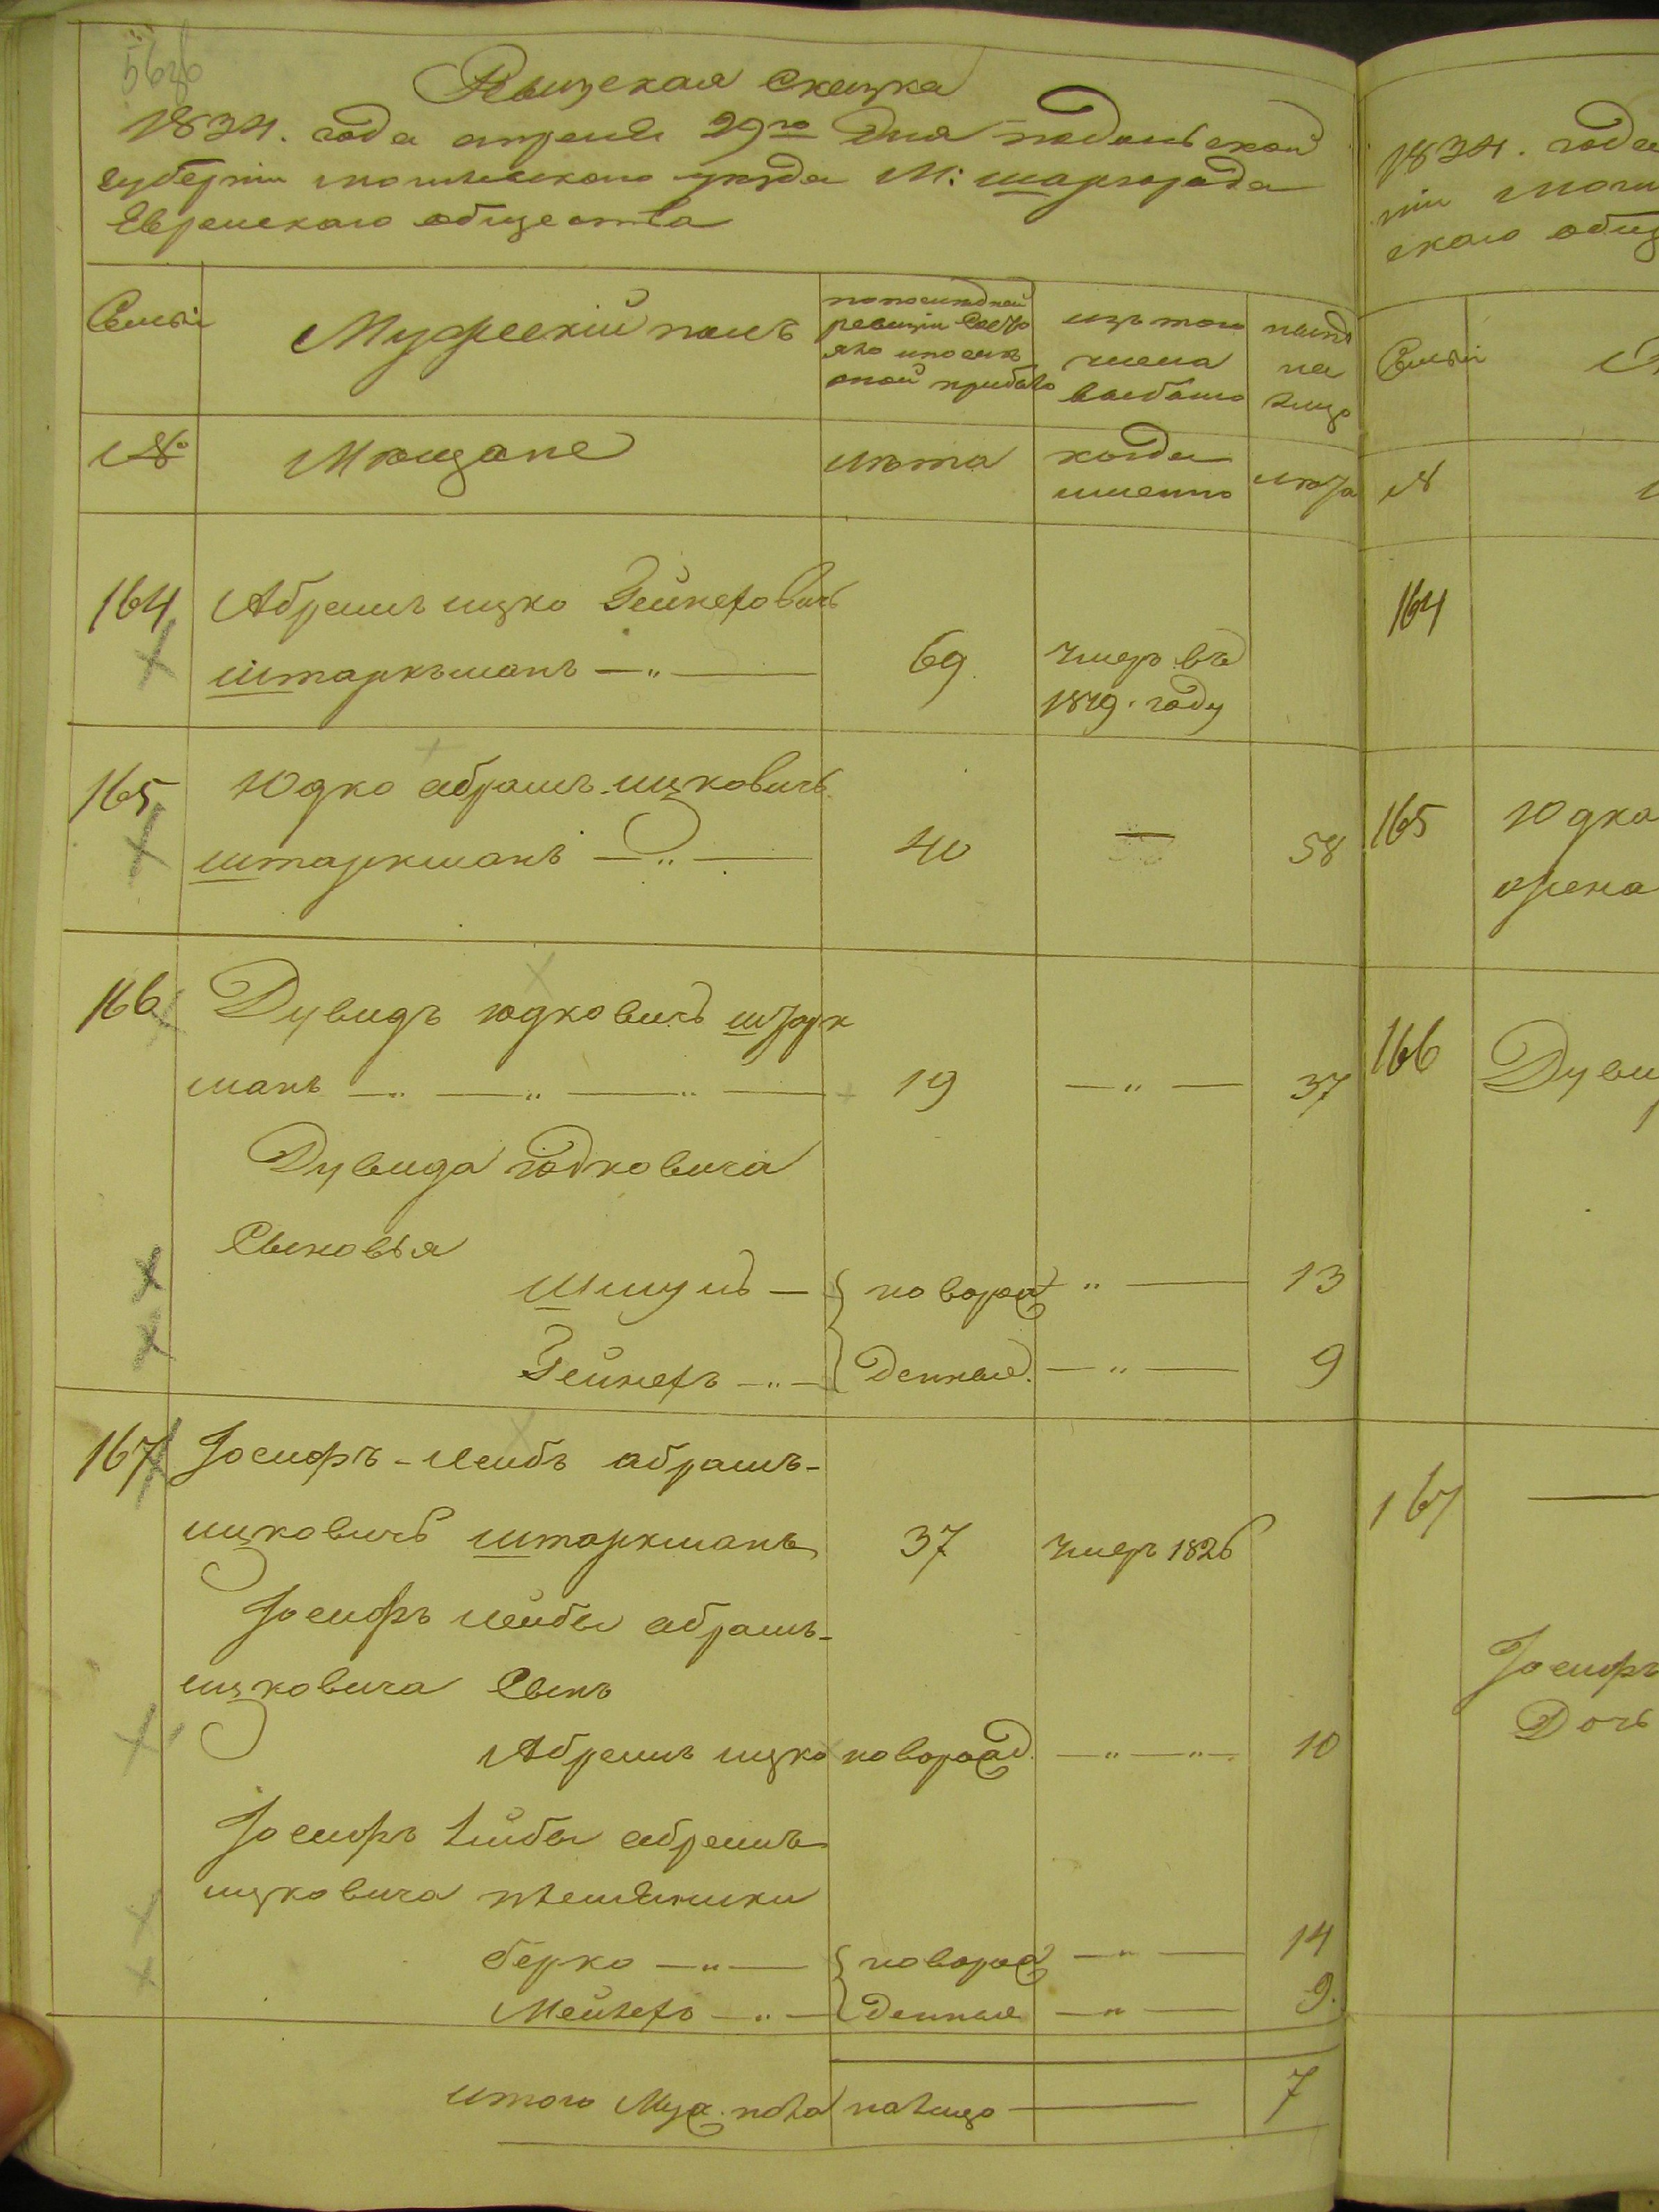 Ревизская Сказка
1834. года апреля 29го Дня подольской
губернiи могилевского уезда М: шаргорода
Еврейскаго общества
Семьи
Мужескiй полъ
по последней
ревизiи состо
яло и после
оной прибыло
изъ того
числа
выбыло
ныне
на
лицо
№
Мещане
лета
когда
именно
лета
164
Абрамъ ицко Зейнефовичъ
штаркъманъ — „ —
69
умеръ въ
1819. году
165
Юдко абрамъ-ицковичъ
штаркманъ — „ —
40
—
58
166
Дувидъ юдковичъ штарк
манъ — „ — „ — „ —
19
— „ —
37
Дувида юдковича
Сыновья
Шмуль —
новорож
„ —
13
Зейнефъ — „ —
Денные.
— „ —
9
167
Iосифъ-лейбъ абрамъ-
ицковичъ штаркманъ
37
умеръ 1826
Iосифъ лейбы абрамъ-
ицковича Сынъ
Абрамъ ицко
новорожд.
— „ — „ —
10
Iосифъ лейбы абрамъ
ицковича племянники
берко — „ —
новорож
— „ —
14
Мейлехъ — „ —
Денные
— „ —
9.
итого Муж. пола
налицо
7
1834. года
скаго общ
Семьи
№
164
165
Юдка
166
Дуви
167
Iосифъ
Дочь